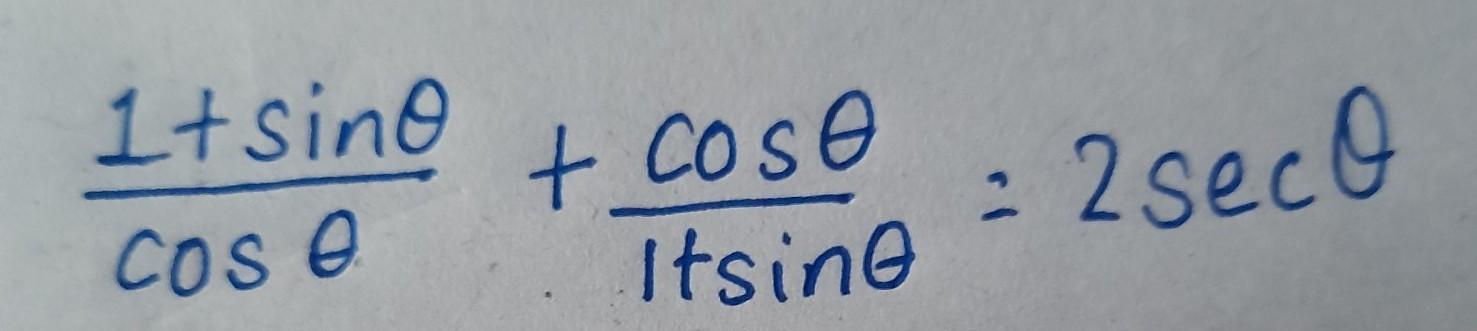 (1+sinθ)/(cos θ) + (cosθ)/(1+sinθ) = 2secθ